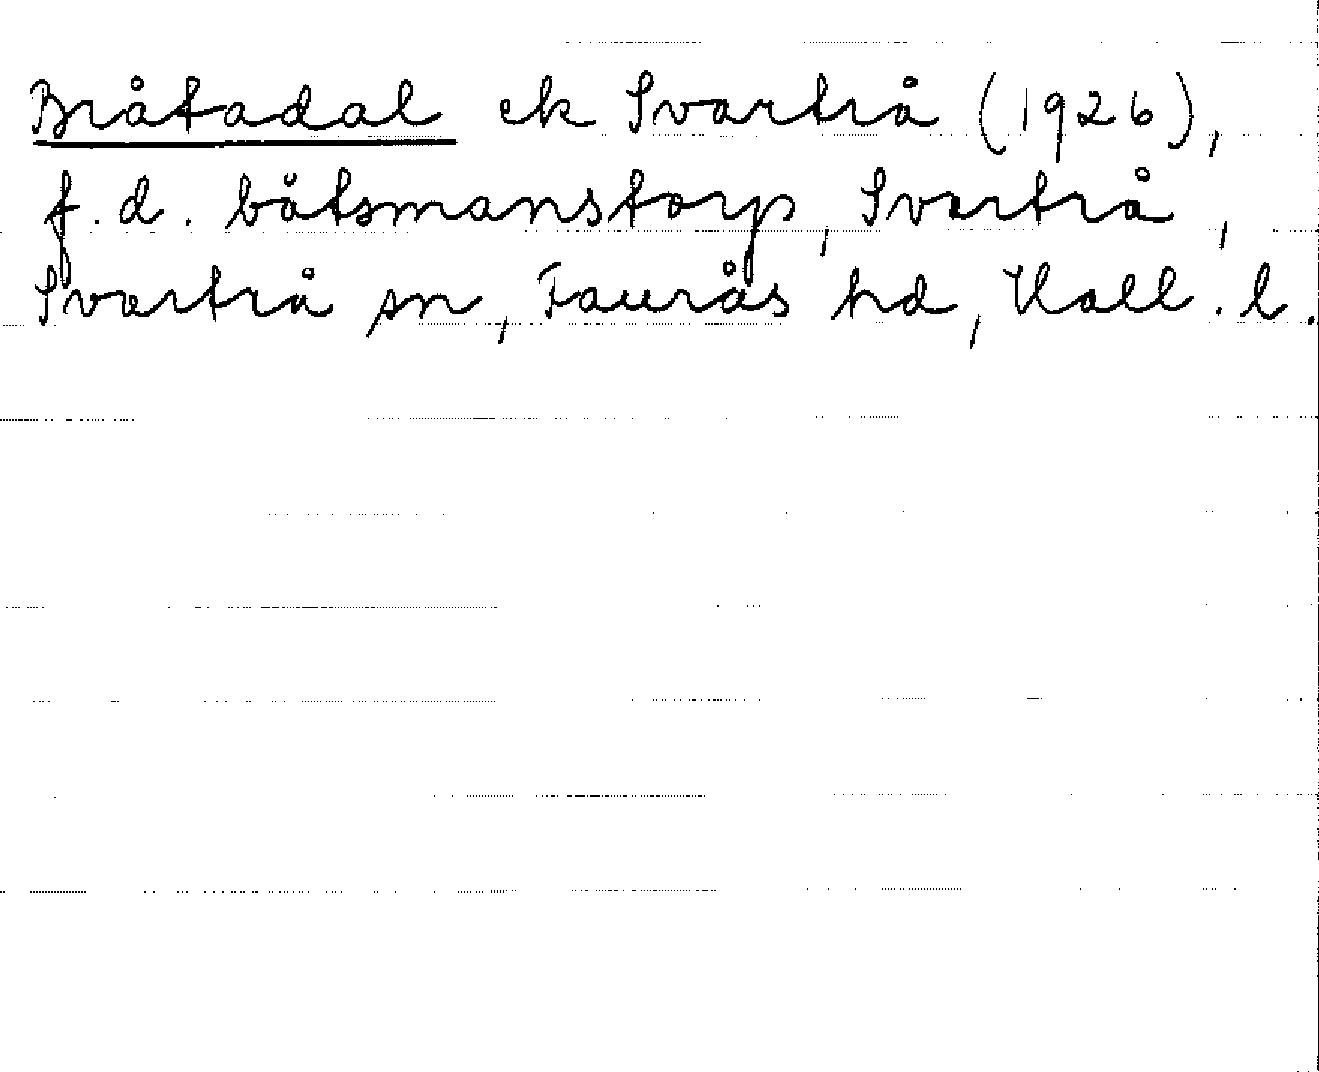 Bråtadal ek Svartrå (1926),
f.d. båtsmanstorp, Svartrå,
Svartrå sn, Faurås hd, Hall. l.